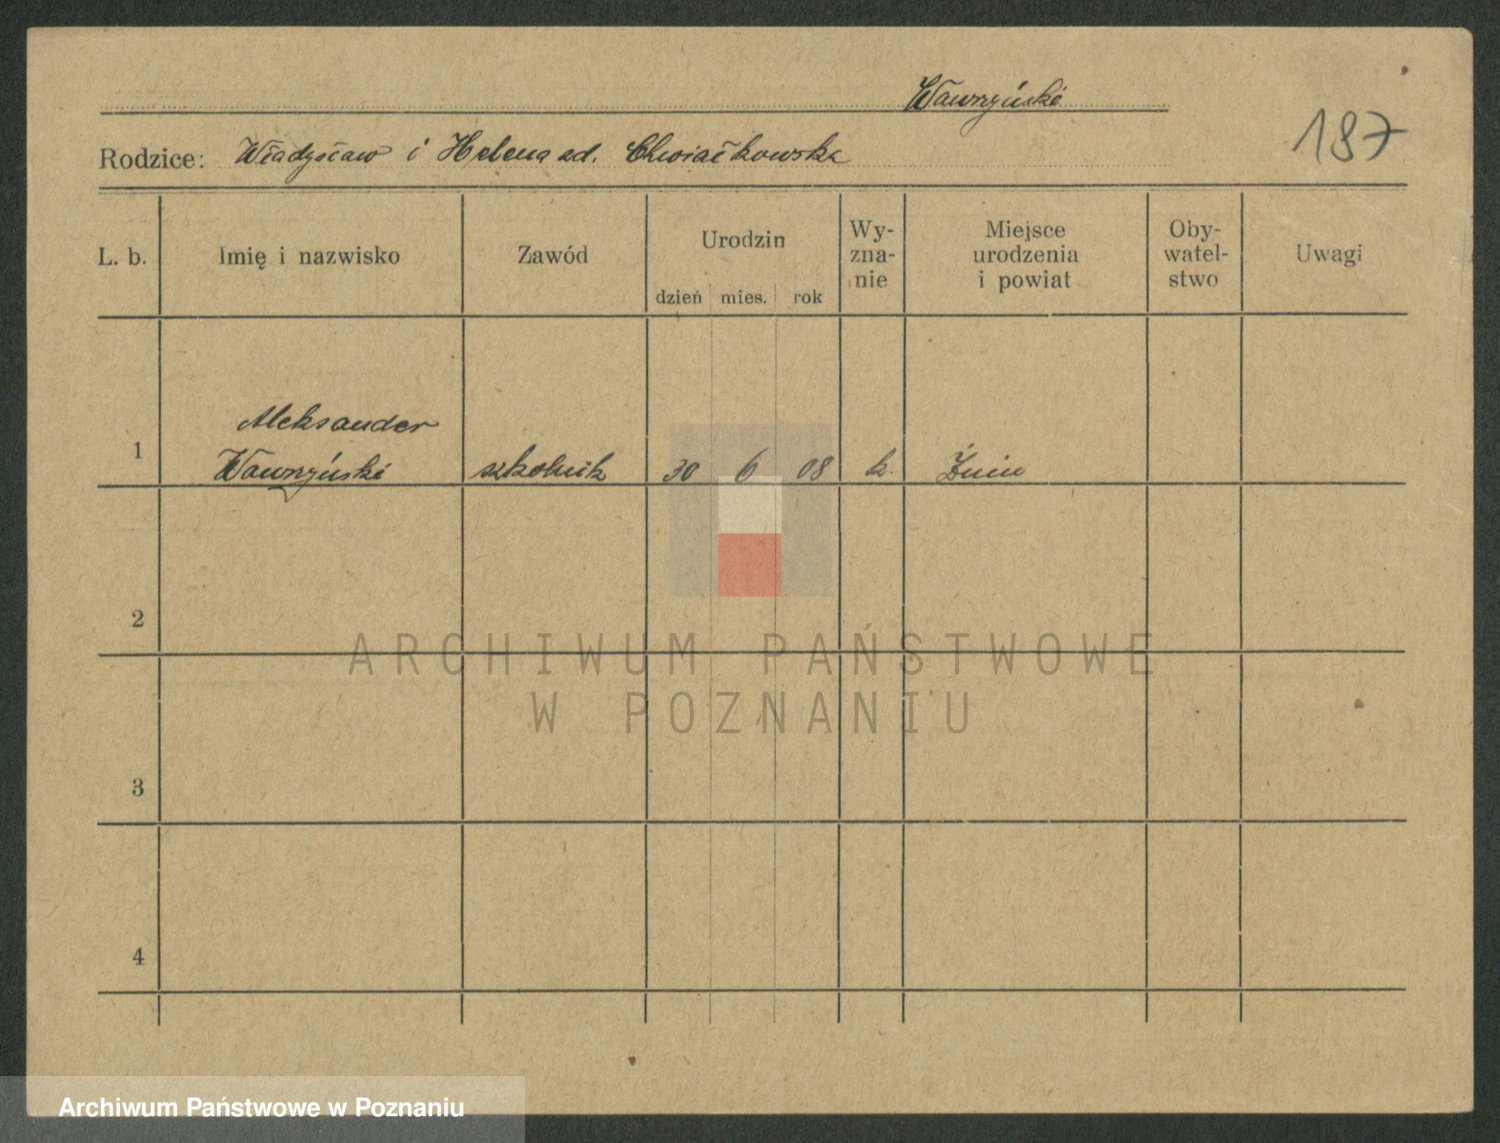 Wawrzyński
187
Rodzice: Władysław i Helena zd. Chwiałkowska
L. b. Imię i nazwisko Zawód Urodzin dzień mies. rok Wy-zna-nie Miejsce urodzenia i powiat Oby-watel-stwo Uwagi
Aleksander
1 Wawrzyński szkolnik 30 6 08 k. Żnin
2
ARCHIWUM PAŃSTWOWE
W POZNANIU
3
4
Archiwum Państwowe w Poznaniu